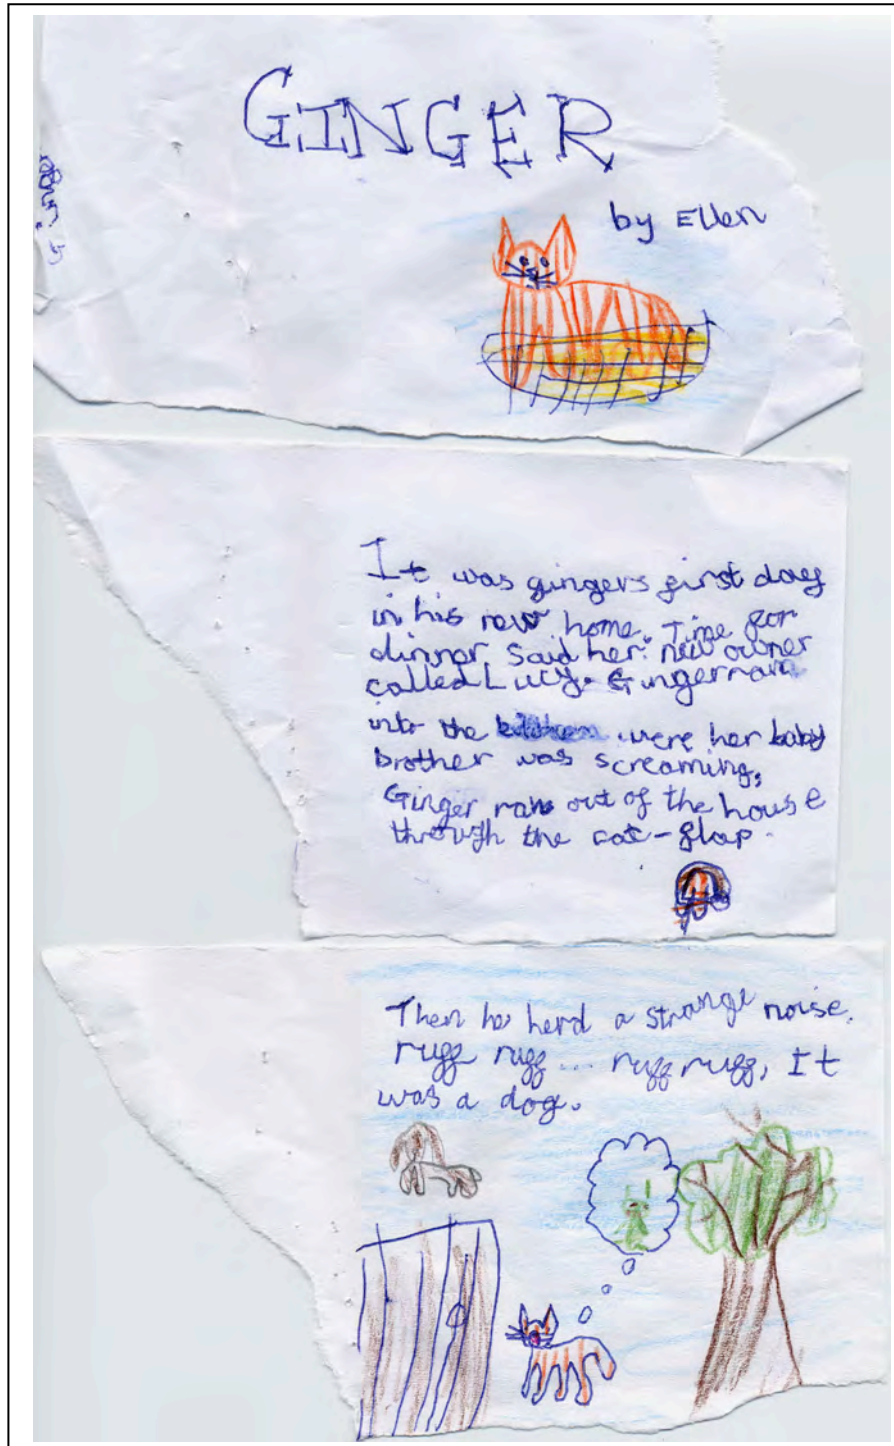 GINGER
by Ellen
It was gingers first day
in his new home. Time for
dinner said her new owner
called Lucy. Ginger ran
into the kitchen were her baby
brother was screaming.
Ginger ran out of the house
through the cat-flap.
Then he herd a strange noise.
rugg rugg... rugg rugg, It
was a dog.